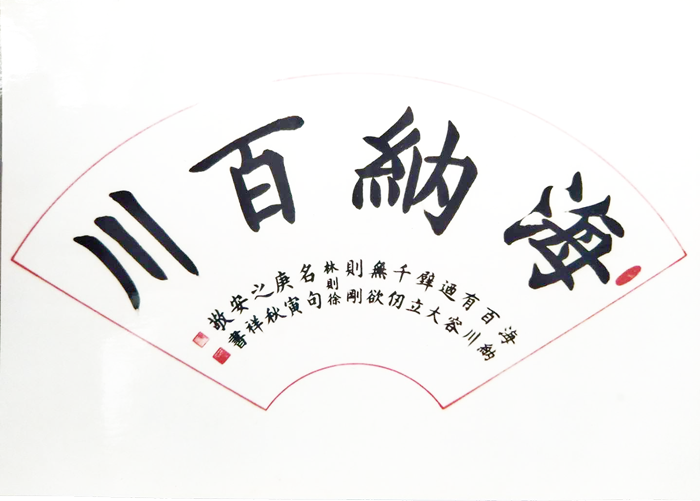 海納百川
海納
百川
有容
迺大
壁立
千仞
無欲
則剛
林則徐
名句
庚寅
之秋
安祥
敬書